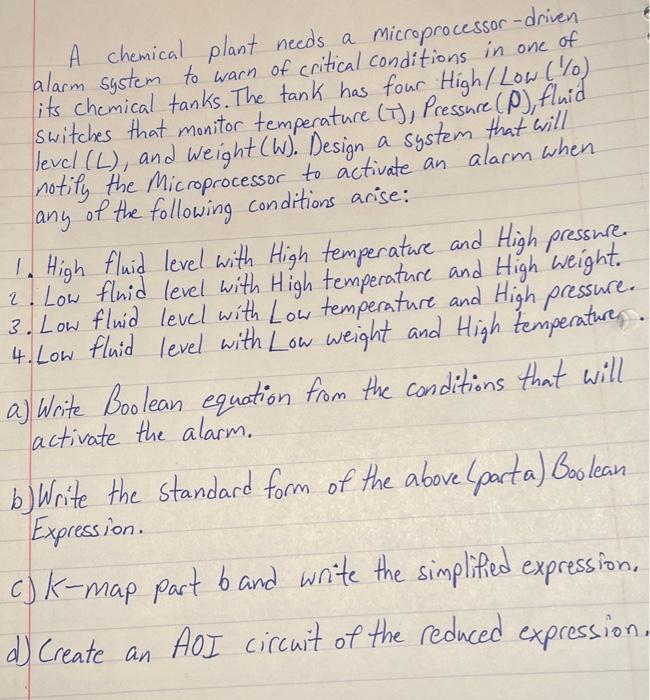 A chemical plant needs a microprocessor-driven
alarm system to warn of critical conditions in one of
its chemical tanks. The tank has four High/Low (1/0)
switches that monitor temperature (T), Pressure (P), fluid
level (L), and Weight (W). Design a system that will
notify the Microprocessor to activate an alarm when
any of the following conditions arise:
1. High fluid level with High temperature and High pressure.
2. Low fluid level with High temperature and High weight.
3. Low fluid level with Low temperature and High pressure.
4. Low fluid level with Low weight and High temperature.
a) Write Boolean equation from the conditions that will
activate the alarm.
b) Write the standard form of the above (part a) Boolean
Expression.
c) K-map part b and write the simplified expression.
d) Create an AOI circuit of the reduced expression.